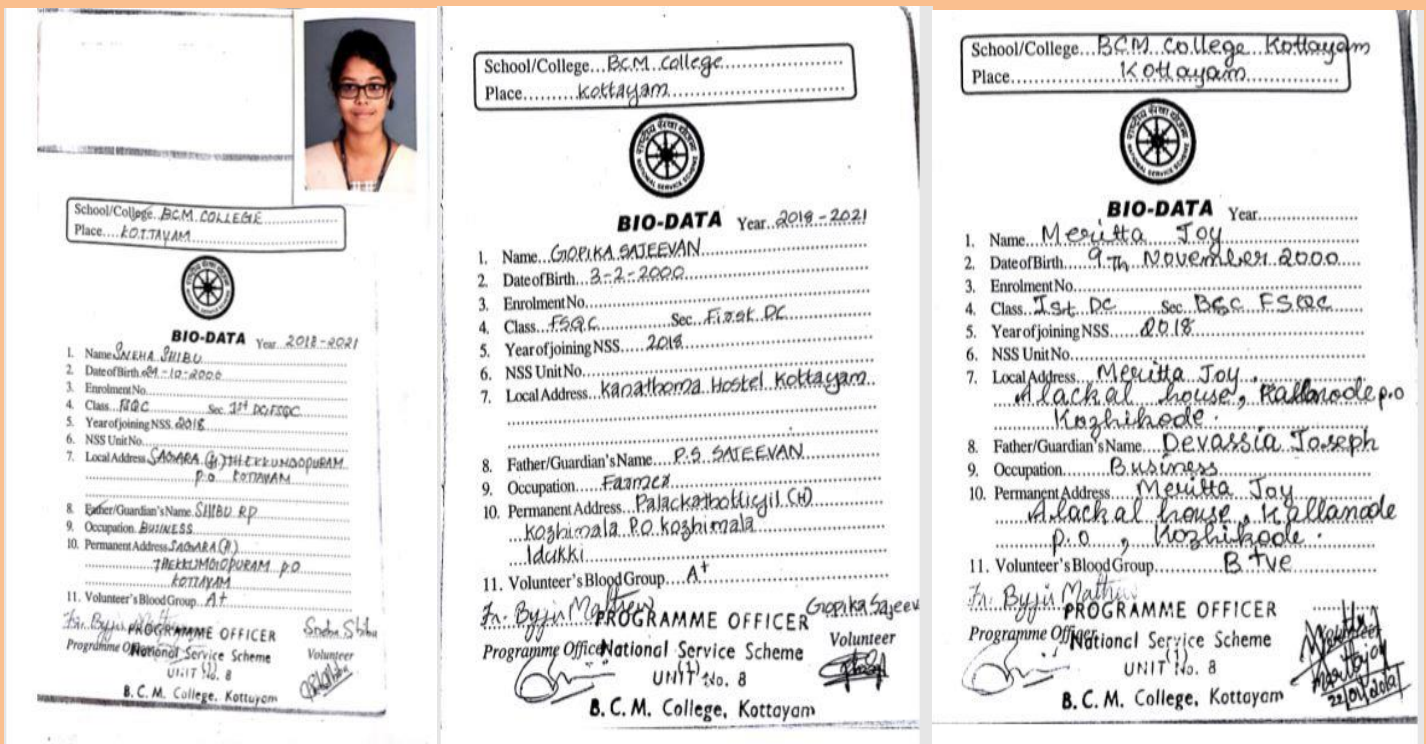 School/College...BCM COLLEGE
Place....KOTTAYAM
राष्ट्रीय सेवा योजना
NATIONAL SERVICE SCHEME
BIO-DATA Year 2018-2021
1. Name SNEHA SHIBU
2. Date of Birth -10-2000
3. Enrolment No.
4. Class FSQC Sec. 1st DC, FSQC
5. Year of joining NSS 2018
6. NSS Unit No.
7. Local Address
P.O KOTTAYAM
8. Father/Guardian's Name SHIBU RP
9. Occupation BUSINESS
10. Permanent Address
P.O
KOTTAYAM
11. Volunteer's Blood Group A+
Fr. Byju Mathew PROGRAMME OFFICER Sneha Shibu
Programme Officer National Service Scheme Volunteer
UNIT No. 8
B. C. M. College, Kottayam
School/College...BCM College
Place.........Kottayam
राष्ट्रीय सेवा योजना
NATIONAL SERVICE SCHEME
BIO-DATA Year 2018-2021
1. Name GOPIKA SAJEEVAN
2. Date of Birth 3-2-2000
3. Enrolment No.
4. Class FSQC Sec. First DC
5. Year of joining NSS 2018
6. NSS Unit No.
7. Local Address Kanathoma Hostel Kottayam
8. Father/Guardian's Name P.S. SAJEEVAN
9. Occupation Farmer
10. Permanent Address (H)
Kozhimala P.O. Kozhimala
Idukki
11. Volunteer's Blood Group A+
Fr. Byju Mathew PROGRAMME OFFICER Gopika Sajeev
Programme Officer National Service Scheme Volunteer
UNIT No. 8
B. C. M. College, Kottayam
School/College...BCM College Kottayam
Place..........Kottayam
राष्ट्रीय सेवा योजना
NATIONAL SERVICE SCHEME
BIO-DATA Year
1. Name Meritta Joy
2. Date of Birth 9th November 2000
3. Enrolment No.
4. Class Ist DC Sec. BSC FSQC
5. Year of joining NSS 2018
6. NSS Unit No.
7. Local Address Meritta Joy
Alackal house, Kallanode p.o
Kozhikode.
8. Father/Guardian's Name Devassia Joseph
9. Occupation Business
10. Permanent Address Meritta Joy
Alackal house, Kallanode
p.o, Kozhikode.
11. Volunteer's Blood Group B +ve
Fr. Byju Mathew PROGRAMME OFFICER
Programme Officer National Service Scheme Volunteer
UNIT No. 8
B. C. M. College, Kottayam